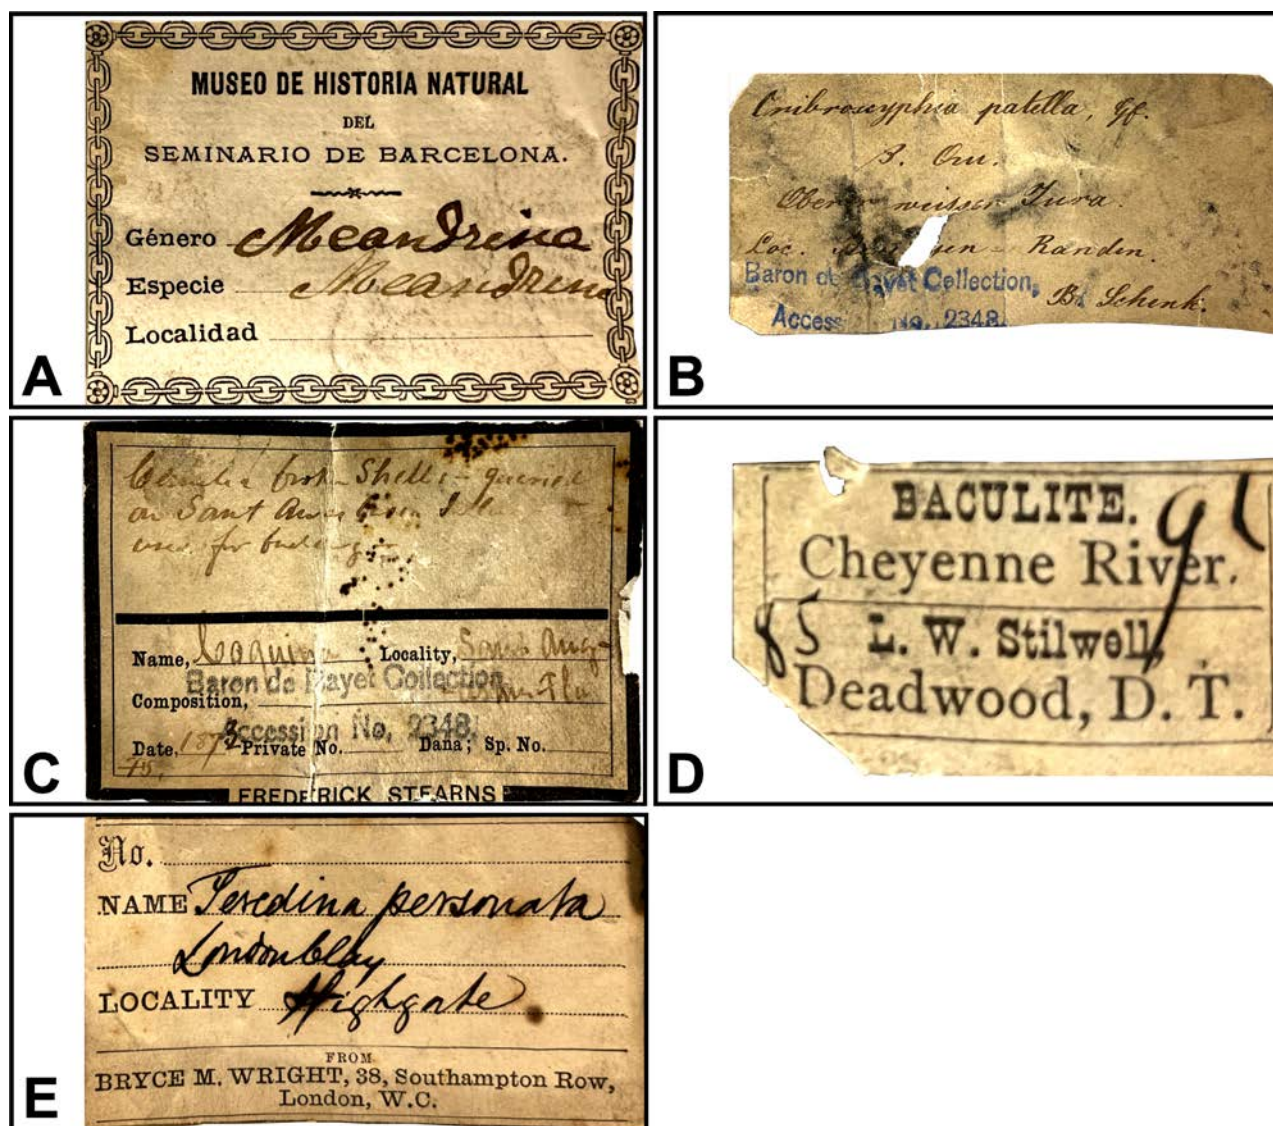 A
MUSEO DE HISTORIA NATURAL
DEL
SEMINARIO DE BARCELONA.
Género Meandrina
Especie Meandrina
Localidad
B
Cribroscyphia patella, Gf.
Oberer weisser Jura.
Loc. Randen.
Baron de Bayet Collection,
B. Schenk.
Accession No. 2348.
C
broken Shells - quarried
on Sant
used for
Name, Coquina Locality, Sant Aug-
Baron de Bayet Collection
Composition, Fla
Accession No, 2348.
Date, 1873 Private No. Dana; Sp. No.
FREDERICK STEARNS
D
BACULITE.
Cheyenne River.
85 L. W. Stilwell,
Deadwood, D. T.
E
No.
NAME Teredina personata
London Clay
LOCALITY Highgate
FROM
BRYCE M. WRIGHT, 38, Southampton Row,
London, W.C.